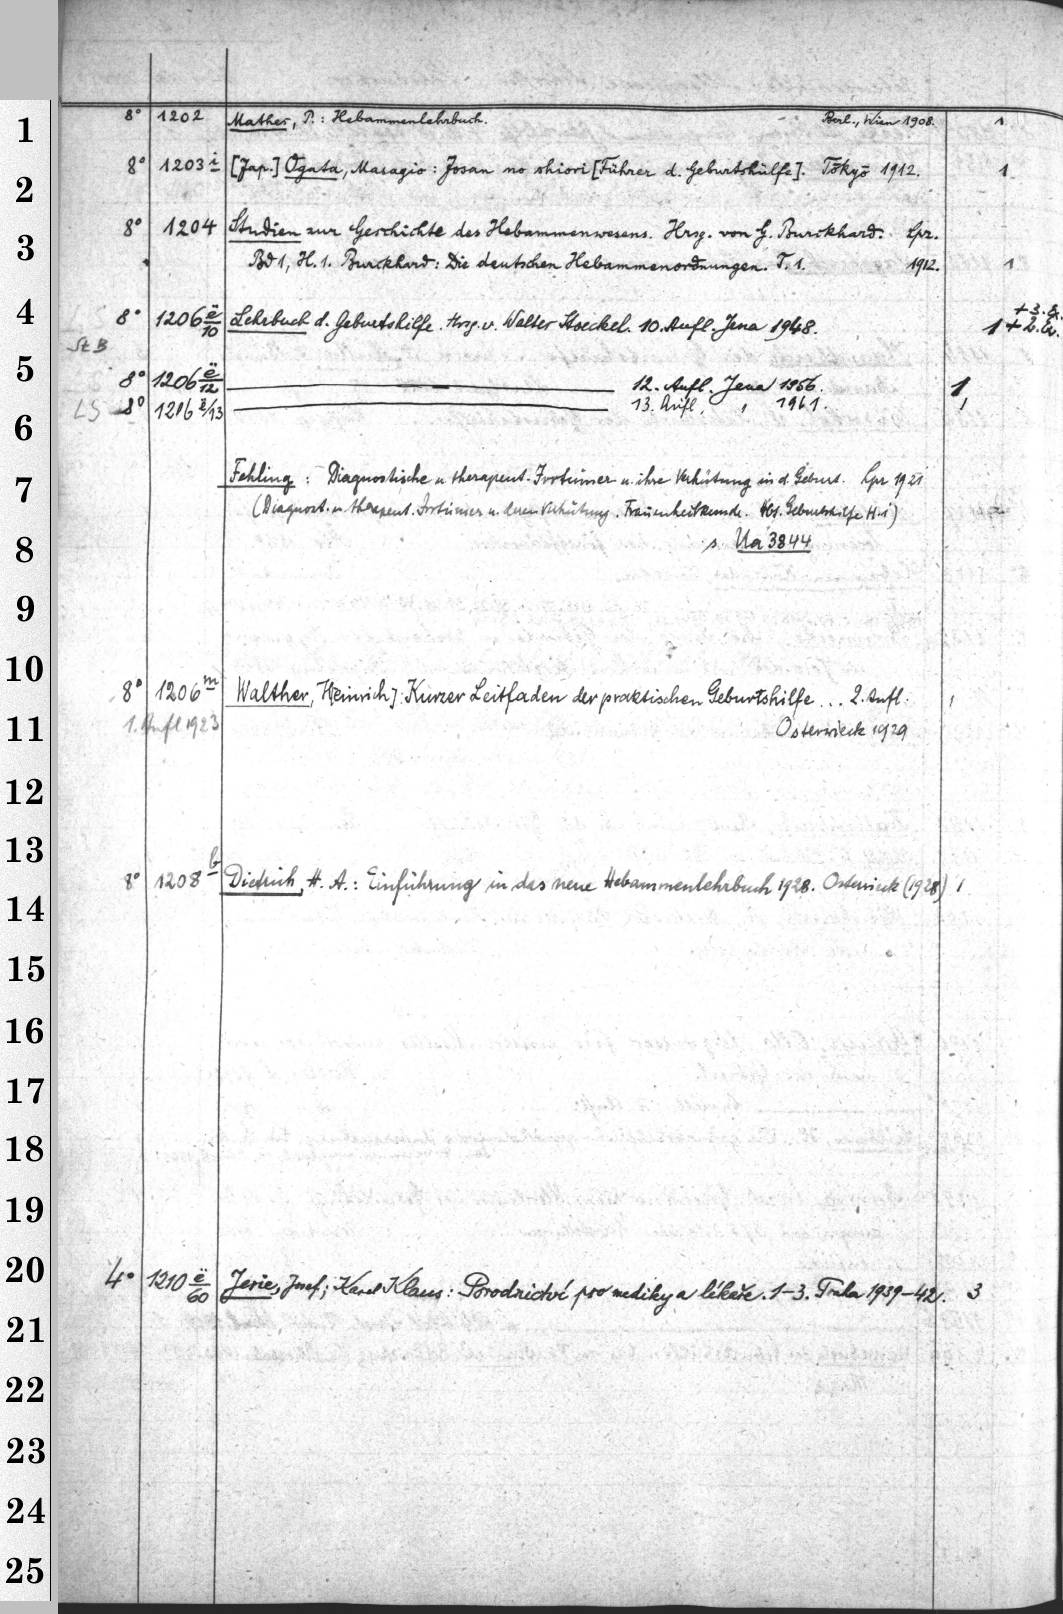 1
8° 1202 Mathes, P.: Hebammenlehrbuch. Berl., Wien 1908. 1
2
8° 1203 i [Jap.] Ogata, Masagio: Josan no shiori [Führer d. Geburtshülfe]. Tōkyō 1912. 1
3
8° 1204 Studien zur Geschichte des Hebammenwesens. Hrsg. von G. Burckhard. Lpz.
Bd 1, H. 1. Burckhard: Die deutschen Hebammenordnungen. T. 1. 1912. 1
4
+ 3. Ex.
LS 8° 1206 ë/10 Lehrbuch d. Geburtshilfe. Hrsg. v. Walter Stoeckel. 10. Aufl. Jena 1948. 1 + 2. Ex.
St B
5
8° 1206 ë/12 — 12. Aufl. Jena 1956. 1
LS 8° 1216 ë/13 — 13. Aufl. " 1961. 1
6
7
Fehling: Diagnostische u therapeut. Irrtümer u. ihre Verhütung in d. Geburt. Lpz 1921
(Diagnost. u. therapeut. Irrtümer u. deren Verhütung. Frauenheilkunde. Abt. Geburtshilfe H. 1)
8
s. Ua 3844
9
10
8° 1206 m Walther, H[einrich]: Kurzer Leitfaden der praktischen Geburtshilfe ... 2. Aufl. 1
11
1. Aufl 1923 Osterwieck 1929
12
13
8° 1208 b Dietrich, H. A.: Einführung in das neue Hebammenlehrbuch 1928. Osterwieck (1928) 1
14
15
16
17
18
19
20
4° 1210 ë/60 Jerie, Josef; Karel Klaus: Porodnictví pro mediky a lékaře. 1-3. Praha 1939-42. 3
21
22
23
24
25